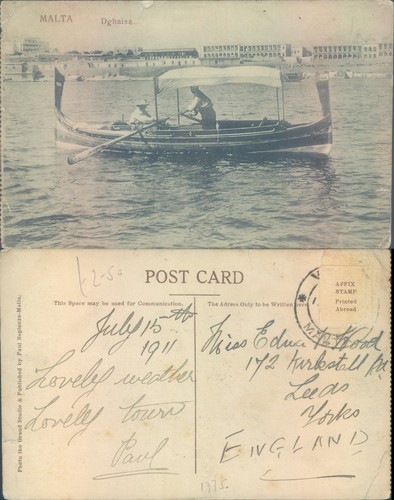 MALTA Dghaisa.
£-2-50
POST CARD
This Space may be used for Communication.
The Adress Only to be Written here
AFFIX
STAMP
Printed
Abroad
July 15th
1911
Lovely weather
Lovely town
Paul
Miss Edna Wood
172 Kirkstall Rd
Leeds
Yorks
ENGLAND
Photo the Grand Studio & Published by Paul Sapienza-Malta.
1375.